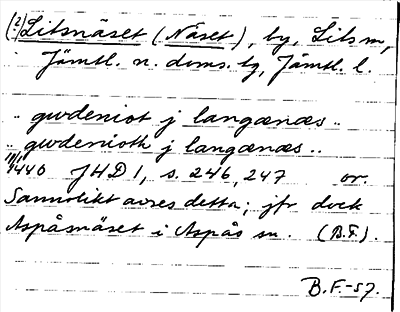 (?) Litsnäset (Näset), by, Lits sn,
Jämtl. n. doms. tg, Jämtl. l.
.. gudeniot j langænæs ..
.. gudenioth j langænæs ..
1440 JHD 1, s. 246, 247 or.
Sannolikt avses detta; jfr dock
Aspåsnäset i Aspås sn. (B.F.).
B.F.-57.